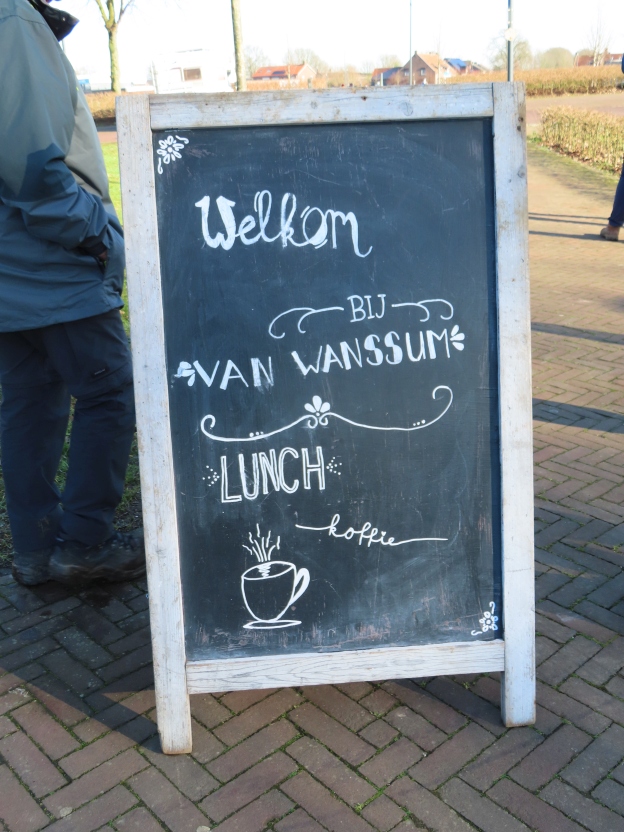 Welkom
BIJ
VAN WANSSUM
LUNCH
koffie